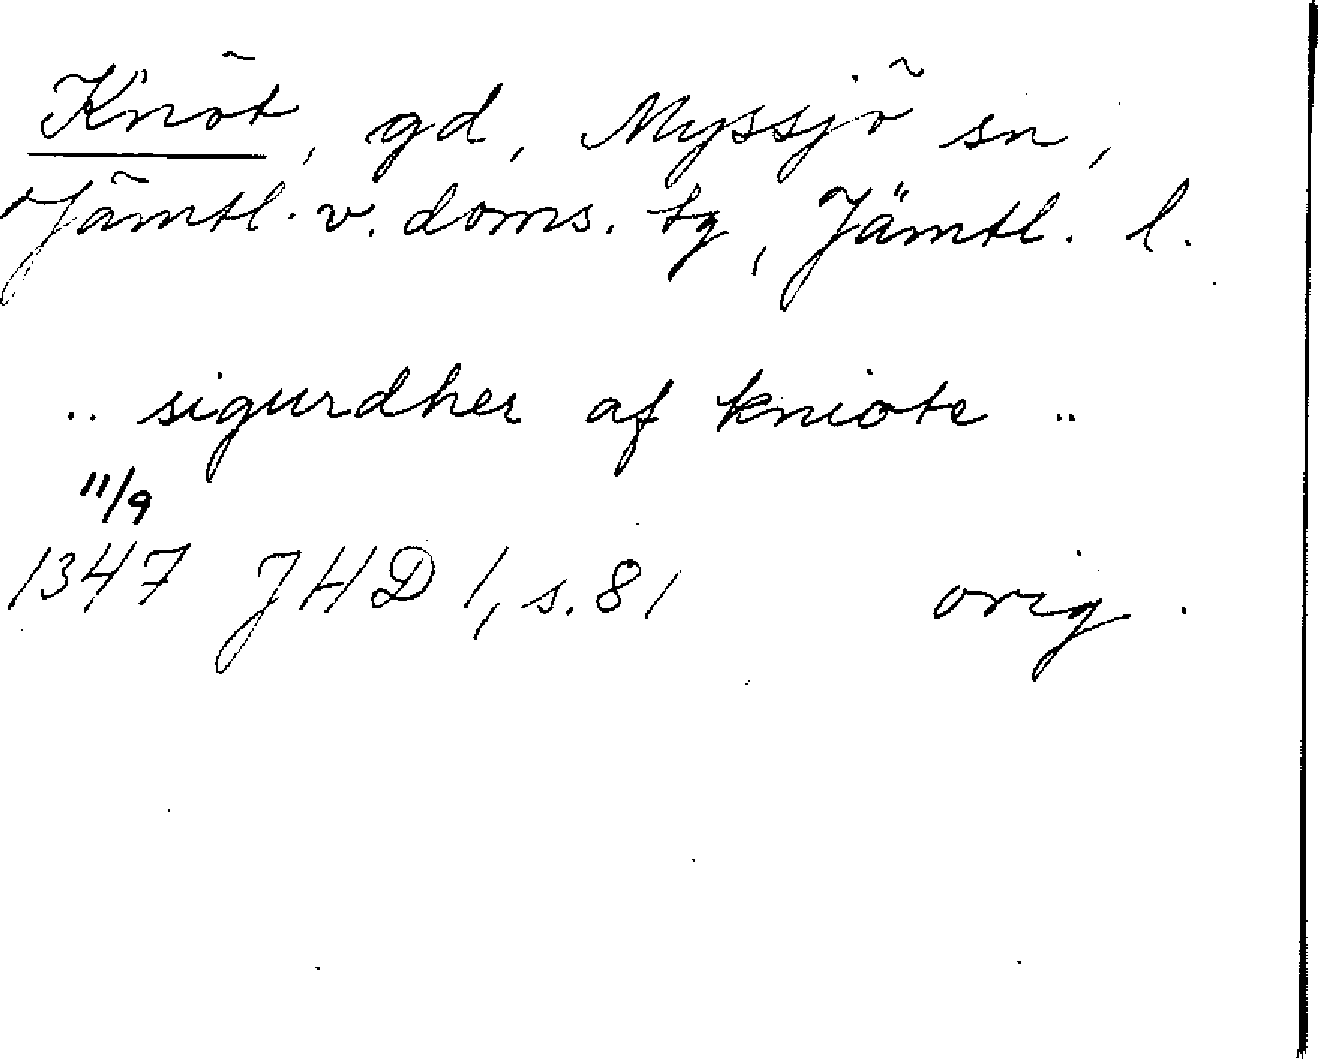 Knöt, gd, Myssjö sn,
Jämtl. v. doms. tg, Jämtl. l.
.. sigurdher af kniote ..
11/9
1347 JHD 1, s. 81 orig.